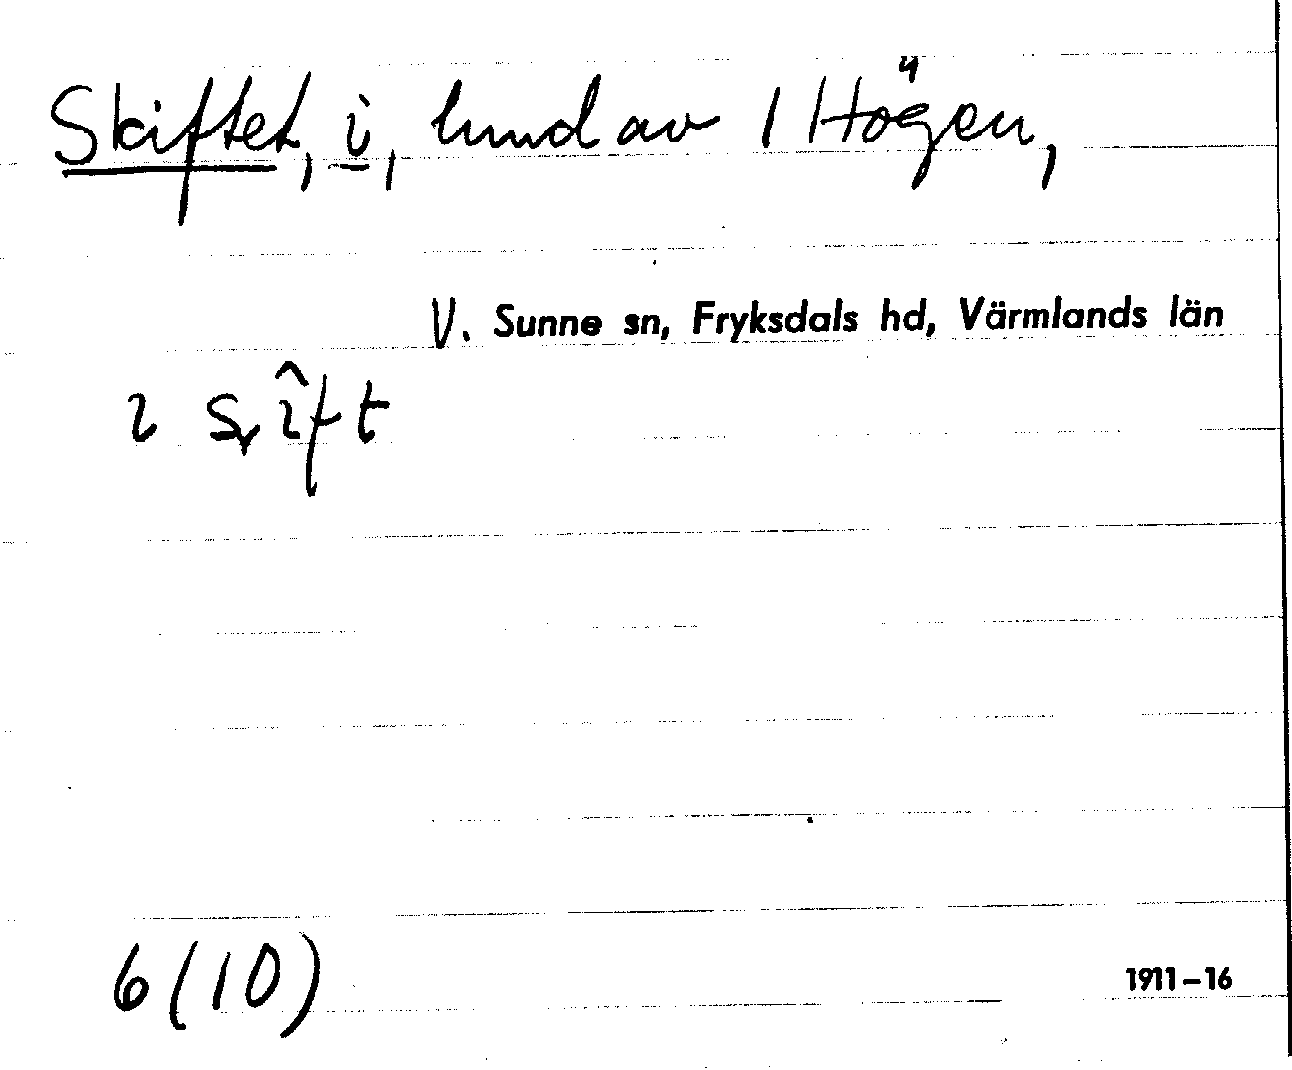 Skiftet, i, hmd av 1 Högen,
V. Sunne sn, Fryksdals hd, Värmlands län
ft
6 (10)
1911–16